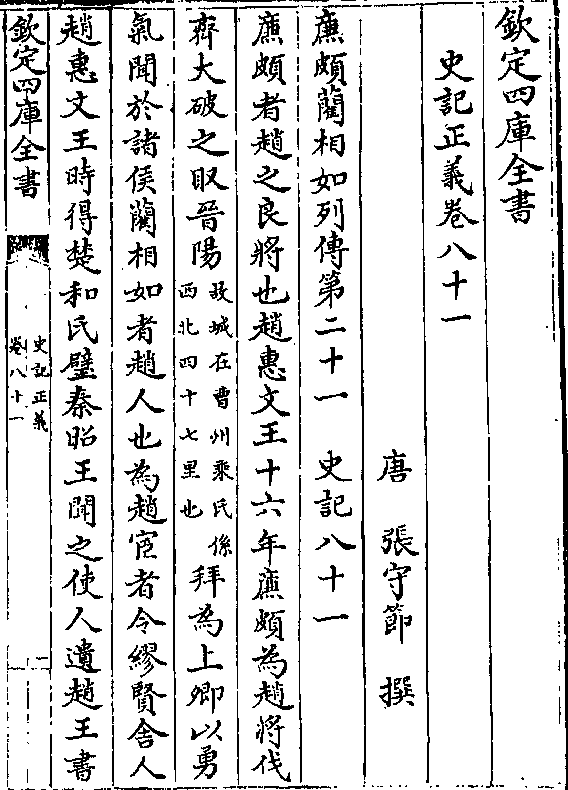 欽定四庫全書
史記正義卷八十一
唐 張守節 撰
廉頗藺相如列傳第二十一 史記八十一
廉頗者趙之良將也趙惠文王十六年廉頗為趙將伐
齊大破之取晉陽故城在曹州乘氏係西北四十七里也拜為上卿以勇
氣聞於諸侯藺相如者趙人也為趙宦者令繆賢舍人
趙惠文王時得楚和氏璧秦昭王聞之使人遺趙王書
欽定四庫全書
史記正義
卷八十一
一